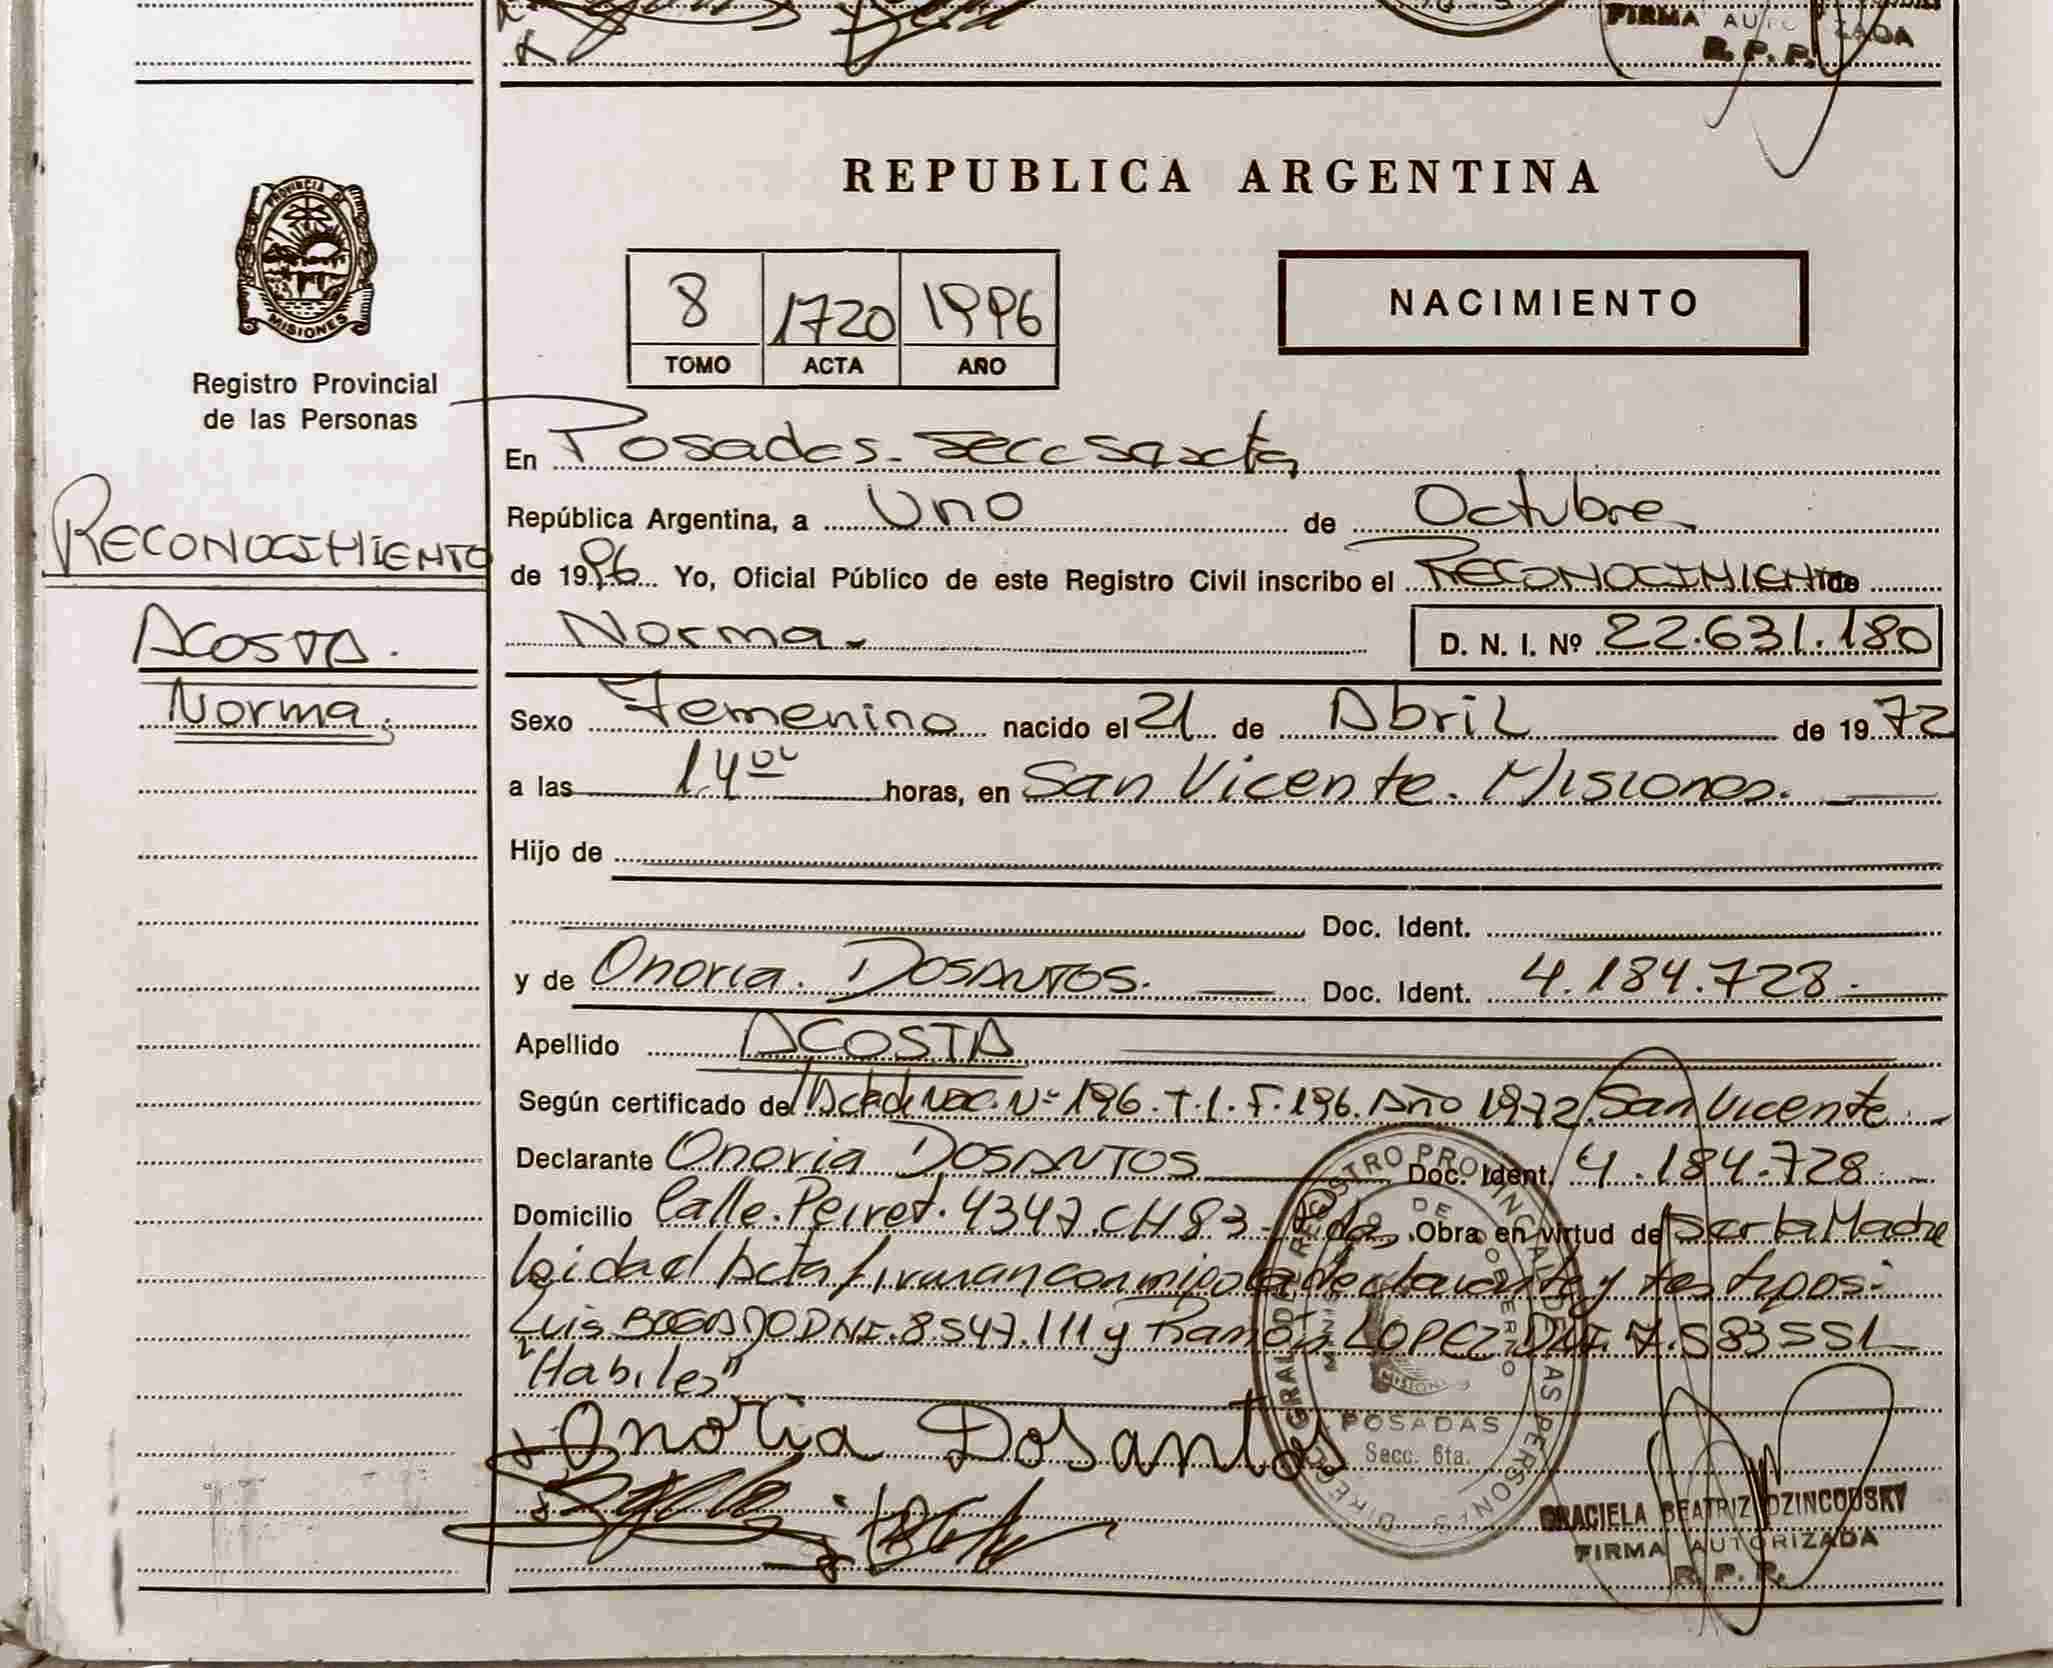 FIRMA AUTORIZADA
R. P. P.
PROVINCIA DE
MISIONES
Registro Provincial
de las Personas
RECONOCIMIENTO
ACOSTA.
Norma.
REPUBLICA ARGENTINA
8 1720 1996
TOMO ACTA AÑO
NACIMIENTO
En Posadas. Secc Sexta
República Argentina, a Uno de Octubre
de 1996 Yo, Oficial Público de este Registro Civil inscribo el RECONOCIMIENTO de
Norma. D. N. I. Nº 22.631.180
Sexo Femenino nacido el 21 de Abril de 1972
a las 14 00 horas, en San Vicente. Misiones.
Hijo de
Doc. Ident.
y de Onoria. DOSANTOS. Doc. Ident. 4.184.728.
Apellido ACOSTA
Según certificado de Acta de Nac. Nº 196. T.1. F.196. Año 1972. San Vicente.
Declarante Onoria DOSANTOS Doc. Ident. 4.184.728.
Domicilio Calle. Peiret. 4347. CH 83 - Pdas. Obra en virtud de ser la Madre
Leida el Acta firman conmigo la declarante y testigos:
Luis BOGADO DNI. 8.547.111 y Ramón LOPEZ DNI. 7.583551
"Habiles"
Onoria Dosantos
DIRECC. GRAL. DE REGISTRO PROVINCIAL DE LAS PERSONAS
MINISTERIO DE GOBIERNO
MISIONES
POSADAS
Secc. 6ta.
GRACIELA BEATRIZ DZINCOUSKY
FIRMA AUTORIZADA
R. P. P.